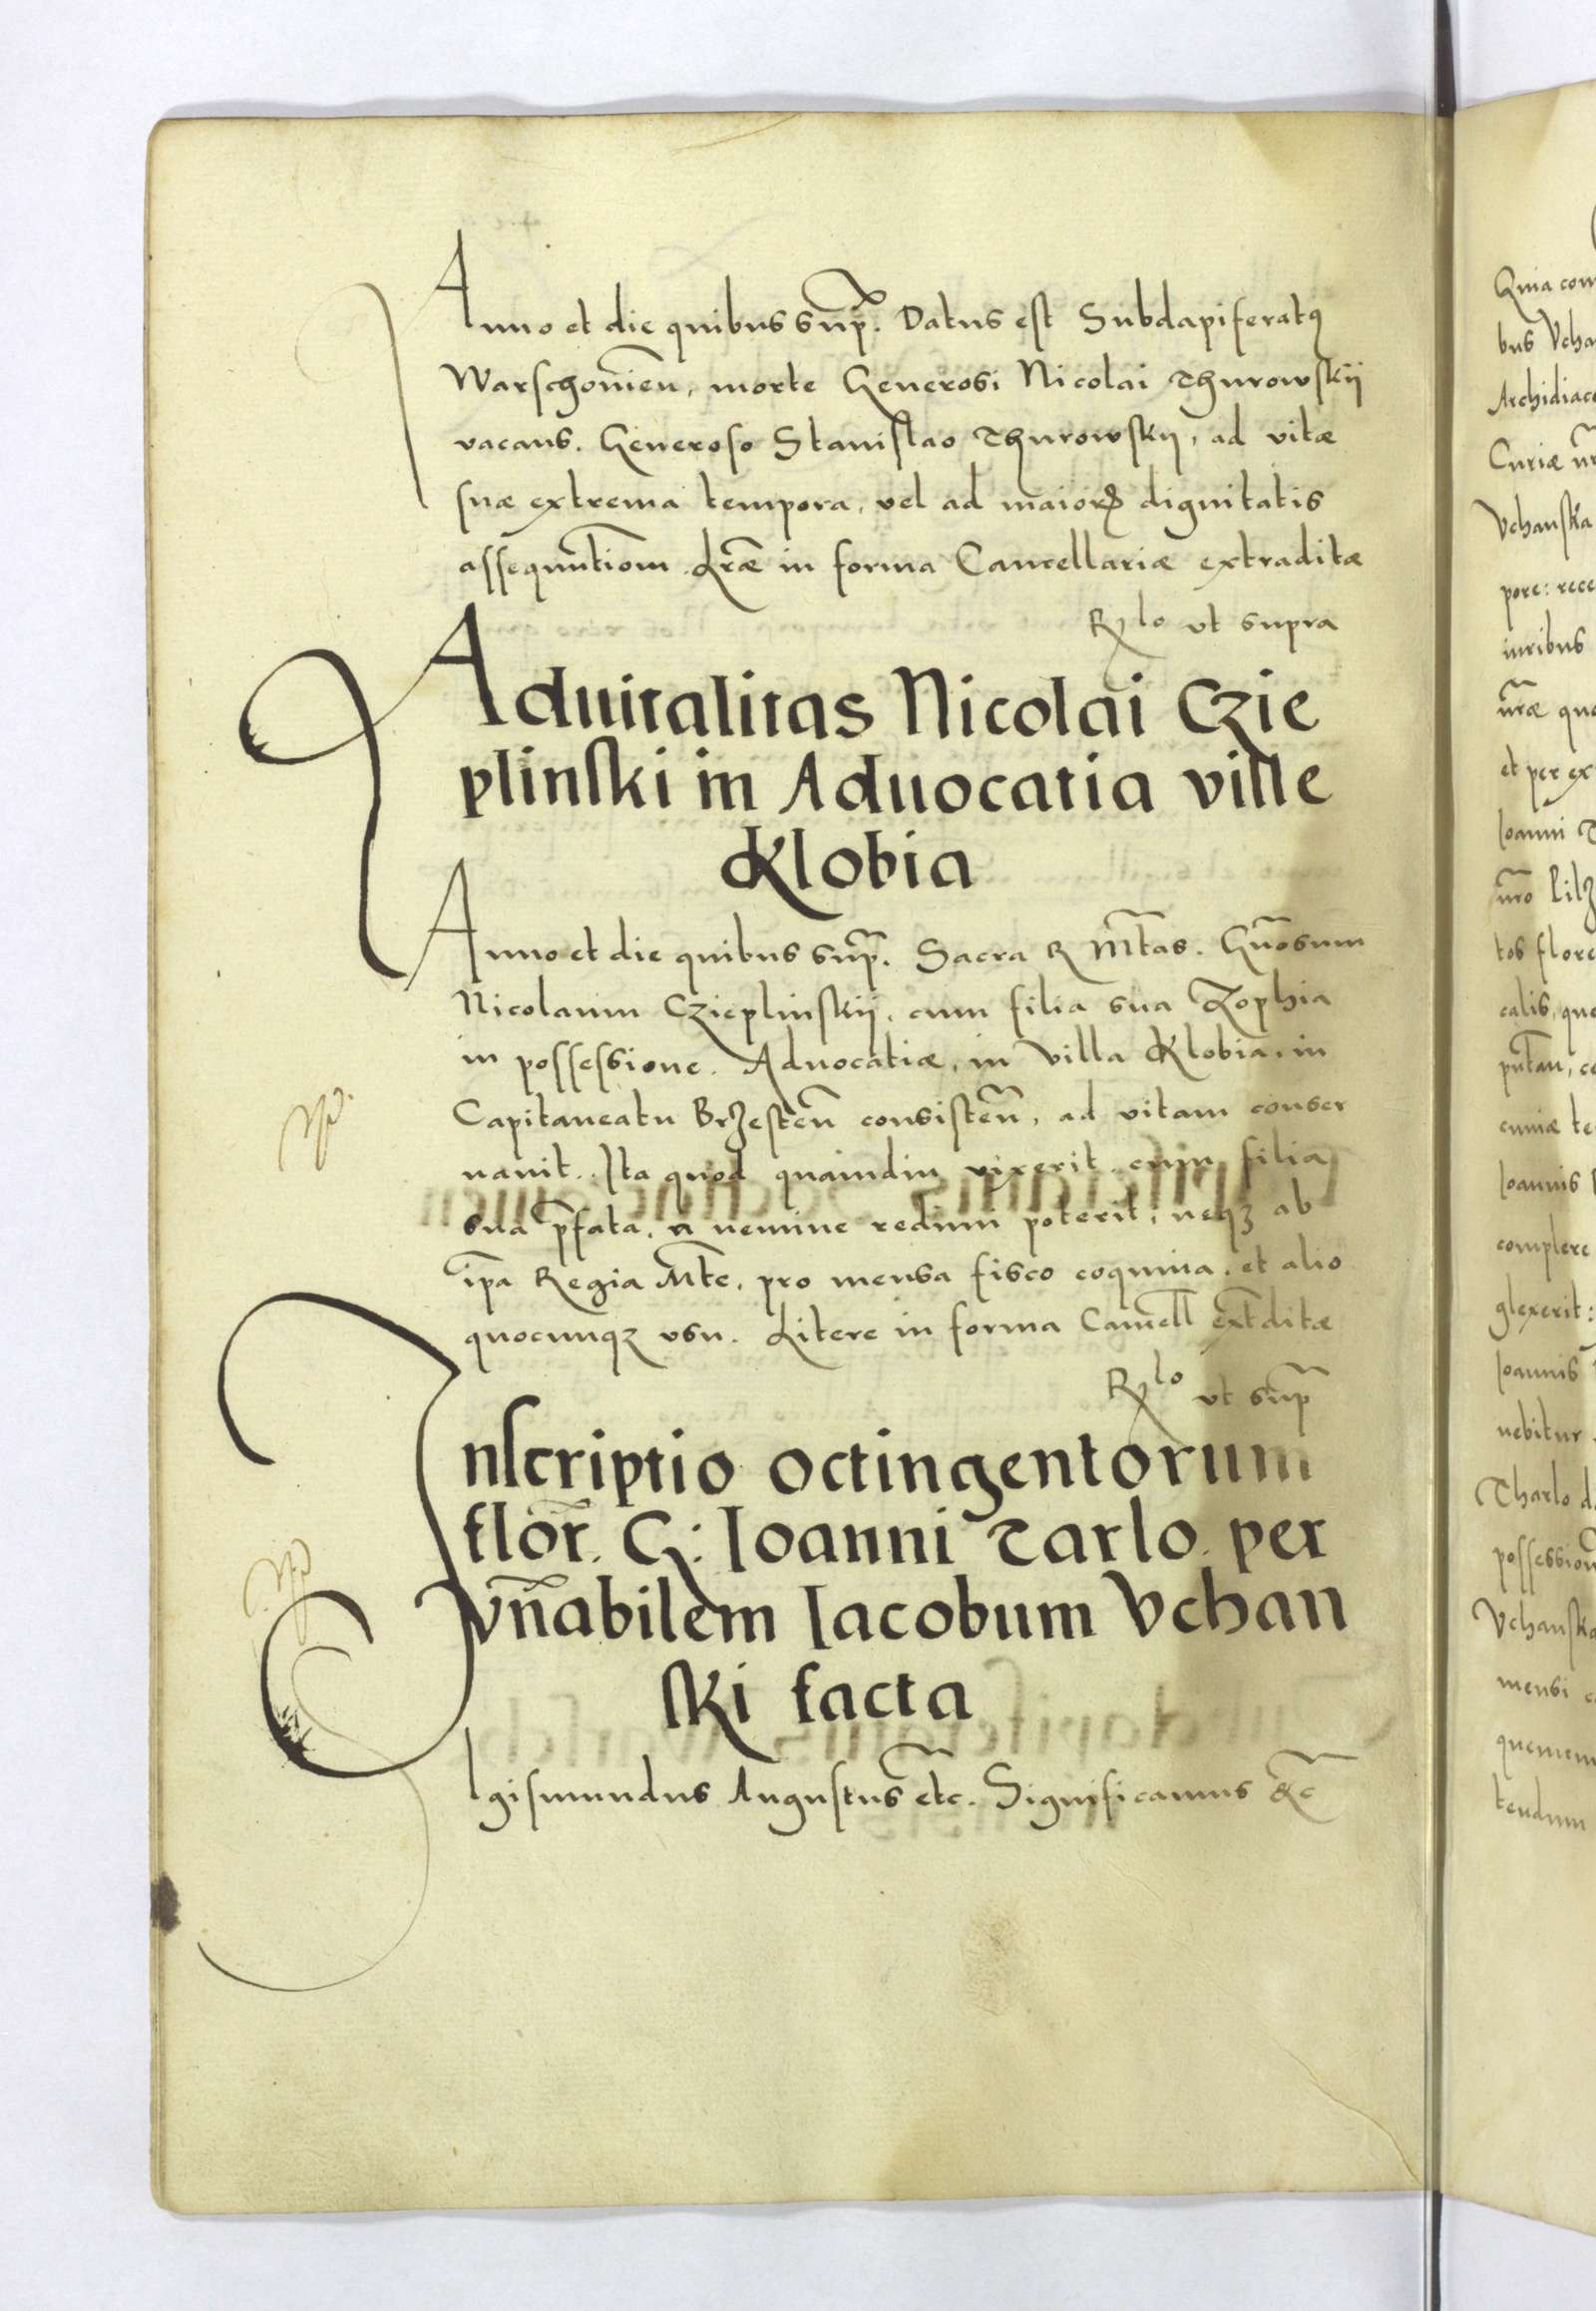 Anno et die quibus sup̃. Datus est Subdapiferatꝰ
Warschovień, morte Generosi Nicolai Thurowskÿ
vacans. Generoso Stanislao Thurowskÿ, ad vitæ
suæ extrema tempora, vel ad maioris dignitatis
assequutiom̃. Lr̃æ in forma Cancellariæ extraditæ
Rlo ut supra
Advitalitas Nicolai Czie
plinski in Advocatia ville
Klobia
Anno et die quibus sup̃. Sacra R Mt̃as. Gñosum
Nicolaum Czieplinskÿ, cum filia sua Zophia
in possessione. Advocatiæ, in villa Klobia, in
Capitaneatu Brzesteñ consisteñ, ad vitam conser
vavit. Ita quod quamdiu vixerit cum filia
sua p̃fata, a nemine redimi poterit, neqꝫ ab
ip̃a Regia Mt̃e, pro mensa fisco coquina, et alio
quocunqꝫ usu. Litere in forma Cancell̃ ext̃ditæ
Rlo ut sup̃
Inscriptio octingentorum
flor̃. G: Ioanni Tarlo per
Vñabilem Iacobum Vchan
ski facta
Igismundus Augustus etc̃. Significamus &c̃
Quia com
bus Vcha
Archidiaco
Curiæ nr̃
Vchanska
pore: rece
iuribus
nr̃æ qua
et per ex
Ioanni T
nr̃o Pilz
tos flore
calis, que
cuniæ te
Ioannis
complere
glexerit:
Ioannis
nebitur
Tharlo d
possession
Vchanska
mensi c
tendum